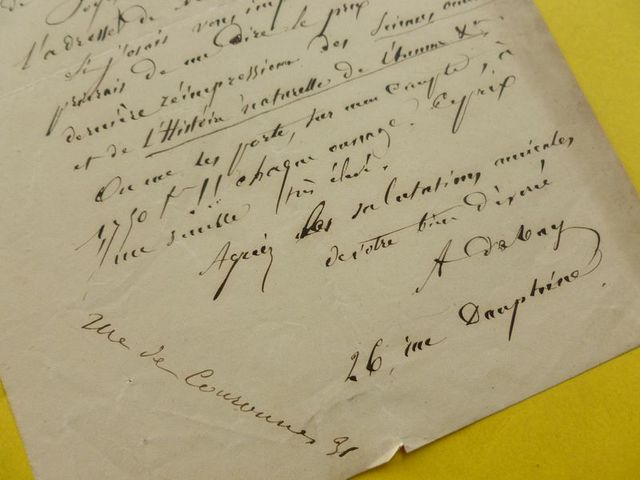 l'adresse de
Si j'osais vous
prierais de me dire le prix
dernière réimpression des Scènes
et de l'Histoire naturelle de l'homme &
On me les porte, sur mon compte, à
chaque ouvrage. Ce prix
me semble très élevé.
Agréez les salutations amicales
de votre bien dévoué
A Debay
26, rue Dauphine.
rue de Couronnes 91